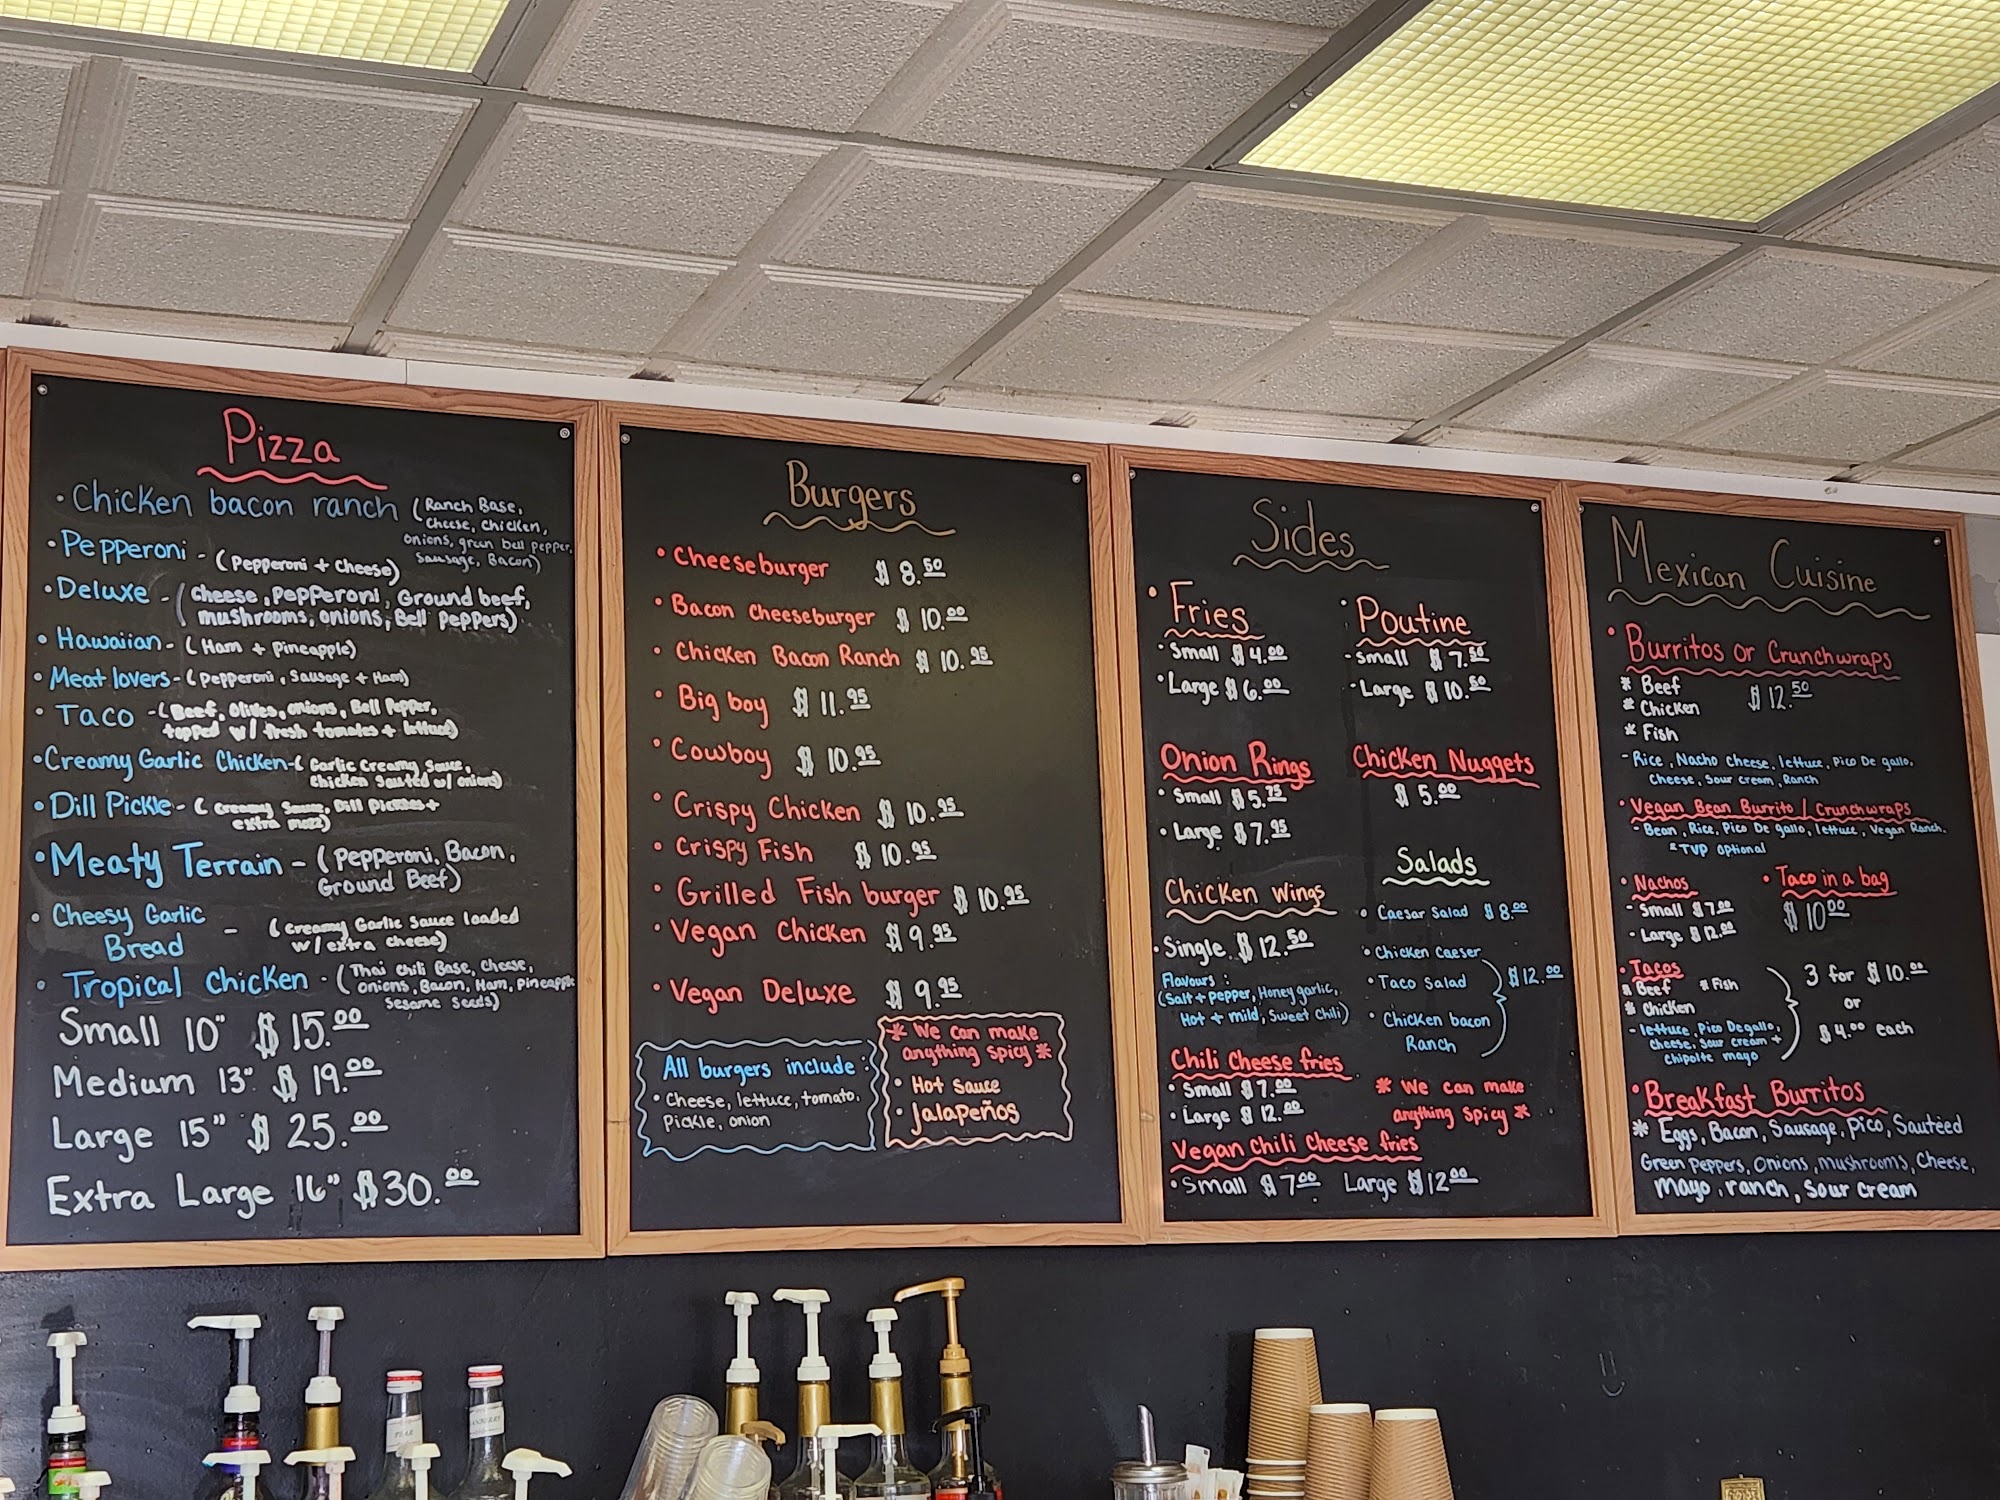 Pizza
• Chicken bacon ranch (Ranch Base,
Cheese, Chicken,
onions, green bell pepper,
Sausage, Bacon)
• Pepperoni - (Pepperoni + Cheese)
• Deluxe - (cheese, pepperoni, Ground beef,
mushrooms, onions, Bell peppers)
• Hawaiian - (Ham + Pineapple)
• Meat lovers - (Pepperoni, Sausage + Ham)
• Taco - (Beef, Olives, onions, Bell Pepper,
topped w/ fresh tomatoes + lettuce)
• Creamy Garlic Chicken - ( Garlic Creamy Sauce,
chicken Sauted w/ onions)
• Dill Pickle - ( Creamy Sauce, Dill Pickles +
extra mozz)
• Meaty Terrain - (Pepperoni, Bacon,
Ground Beef)
• Cheesy Garlic
Bread - (Creamy Garlic Sauce loaded
w/ extra cheese)
• Tropical Chicken - (Thai Chili Base, Cheese,
onions, Bacon, Ham, Pineapple
Sesame Seeds)
Small 10" $ 15.00
Medium 13" $ 19.00
Large 15" $ 25.00
Extra Large 16" $30.00
Burgers
• Cheeseburger $ 8.50
• Bacon Cheeseburger $ 10.00
• Chicken Bacon Ranch $ 10.95
• Big boy $ 11.95
• Cowboy $ 10.95
• Crispy Chicken $ 10.95
• Crispy Fish $ 10.95
• Grilled Fish burger $ 10.95
• Vegan Chicken $ 9.95
• Vegan Deluxe $ 9.95
All burgers include:
• Cheese, lettuce, tomato,
Pickle, onion
* We can make
anything Spicy *
• Hot sauce
• Jalapeños
Sides
• Fries
• Small $ 4.00
• Large $ 6.00
• Poutine
- Small $ 7.50
- Large $ 10.50
Onion Rings
• Small $ 5.75
• Large $ 7.95
Chicken Nuggets
$ 5.00
Chicken Wings
• Single $ 12.50
Flavours:
(Salt + pepper, Honey garlic,
Hot + mild, Sweet Chili)
Salads
• Caesar Salad $ 8.00
• Chicken Caeser
• Taco Salad $12.00
• Chicken bacon
Ranch
Chili Cheese fries
• Small $ 7.00
• Large $ 12.00
* We can make
anything Spicy *
Vegan Chili Cheese fries
• Small $ 7.00 Large $12.00
Mexican Cuisine
• Burritos or Crunchwraps
* Beef $12.50
* Chicken
* Fish
- Rice, Nacho Cheese, lettuce, Pico De gallo,
Cheese, Sour cream, Ranch
• Vegan Bean Burrito / Crunchwraps
- Bean, Rice, Pico De gallo, lettuce, Vegan Ranch.
* TVP Optional
• Nachos
- Small $ 7.00
- Large $ 12.00
• Taco in a bag
$ 10.00
• Tacos
* Beef * Fish
* Chicken
- lettuce, Pico De gallo,
Cheese, Sour cream +
Chipolte mayo
3 for $ 10.00
or
$ 4.00 each
• Breakfast Burritos
* Eggs, Bacon, Sausage, Pico, Sautéed
Green Peppers, Onions, mushrooms, Cheese,
Mayo, ranch, Sour cream